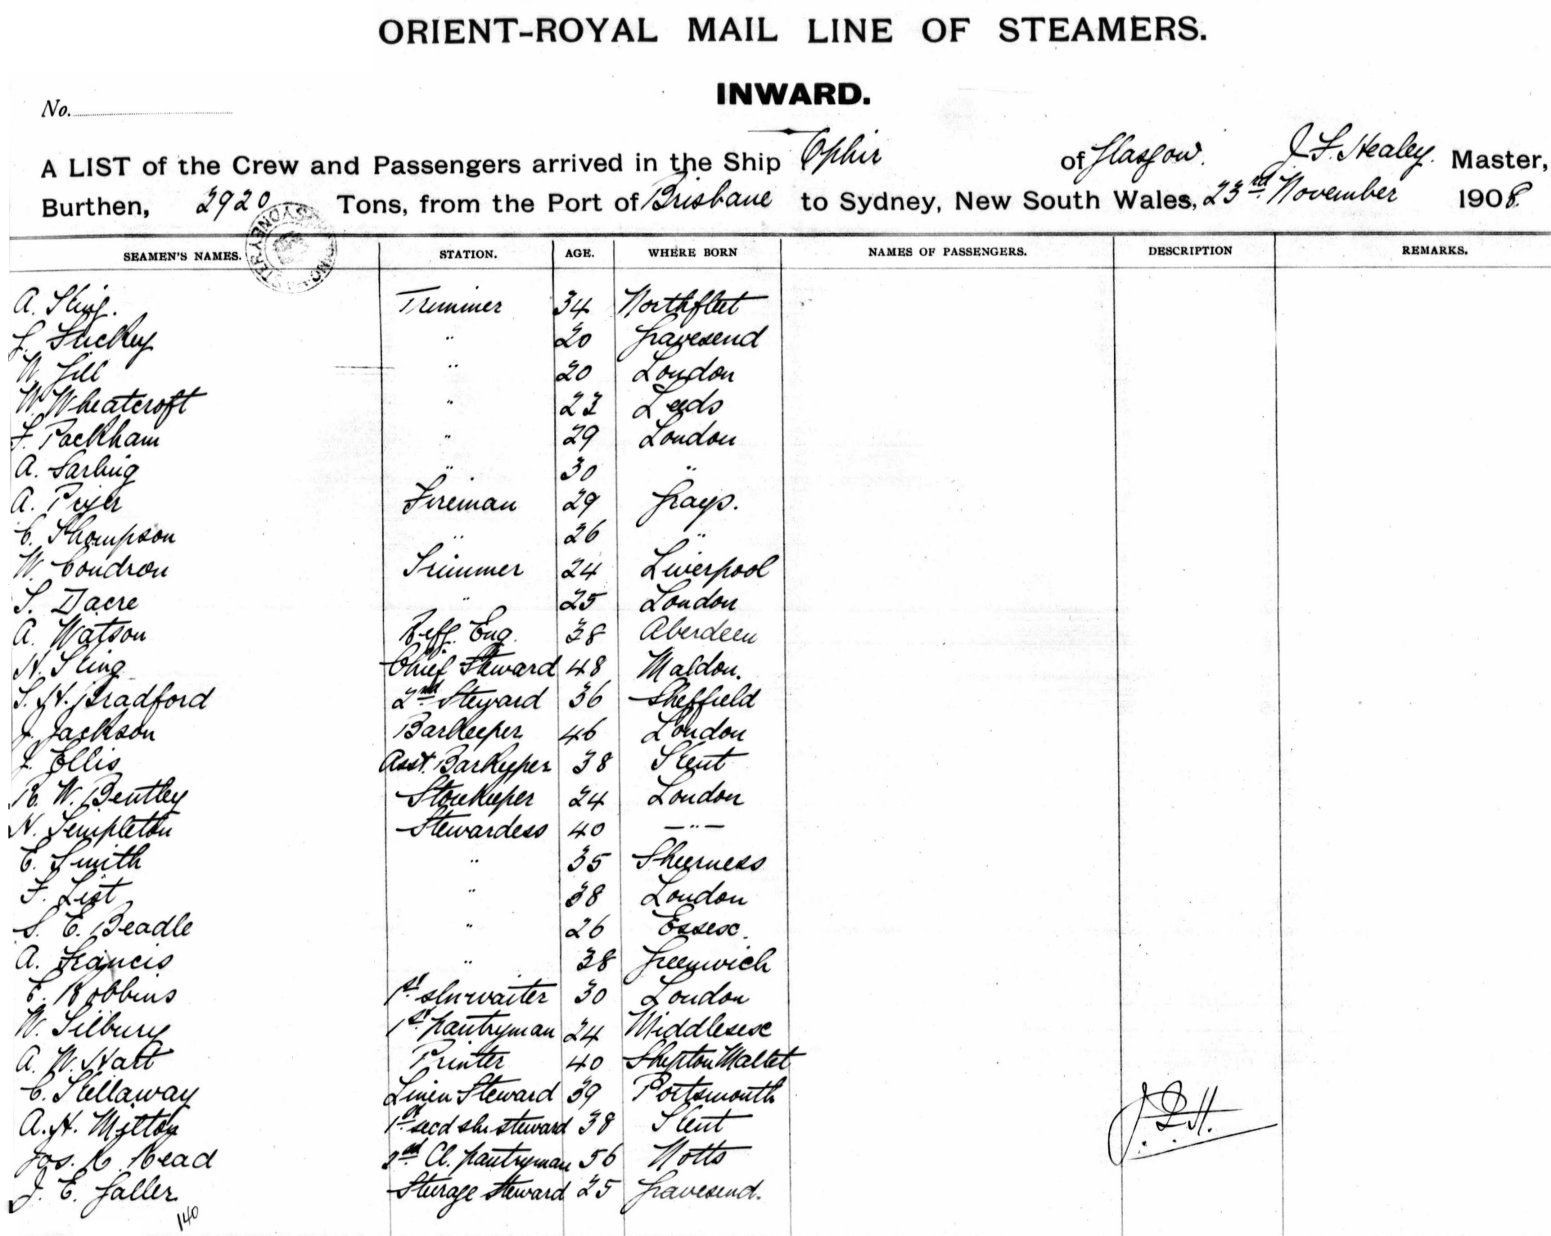 ORIENT-ROYAL MAIL LINE OF STEAMERS.
INWARD.
No.
A LIST of the Crew and Passengers arrived in the Ship Ophir of Glasgow. J. F. Healey. Master,
Burthen, 2920 Tons, from the Port of Brisbane to Sydney, New South Wales, 23rd November 1908
SEAMEN'S NAMES. STATION. AGE. WHERE BORN NAMES OF PASSENGERS. DESCRIPTION REMARKS.
A. King. Trimmer 34 Northfleet
Stickey " 20 Gravesend
W. Gill " 20 London
W. Wheatcroft " 23 Leeds
F. Packham " 29 London
A. Sarling " 30 "
A. Pryer Fireman 29 Grays.
C. Thompson " 26 "
W. Condron Trimmer 24 Liverpool
S. Dacre " 25 London
A. Watson Reff. Eng. 38 Aberdeen
H. King Chief Steward 48 Maldon.
S. H. Bradford 2nd Steward 36 Sheffield
J. Jackson Barkeeper 46 London
Ellis Asst. Barkeeper 38 Kent
R. W. Bentley Storekeeper 24 London
H. Templeton Stewardess 40 — " —
E. Smith " 35 Sheerness
F. List " 38 London
S. E. Beadle " 26 Essex.
A. Francis " 38 Greenwich
E. Robbins 1st slnwaiter 30 London
W. Silbury 1st pantryman 24 Middlesex
A. W. Hart Printer 40 Shepton Mallet
C. Kellaway Linen Steward 39 Portsmouth
A. H. Mitton 1st secd sln steward 38 Kent
Jos. R. Read 2nd Cl. pantryman 56 Notts
J. E. Galler Sturage Steward 25 Gravesend.
140